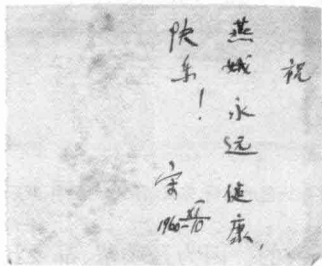 祝
燕娥永远健康，
快乐！
宋
1960 XI/10